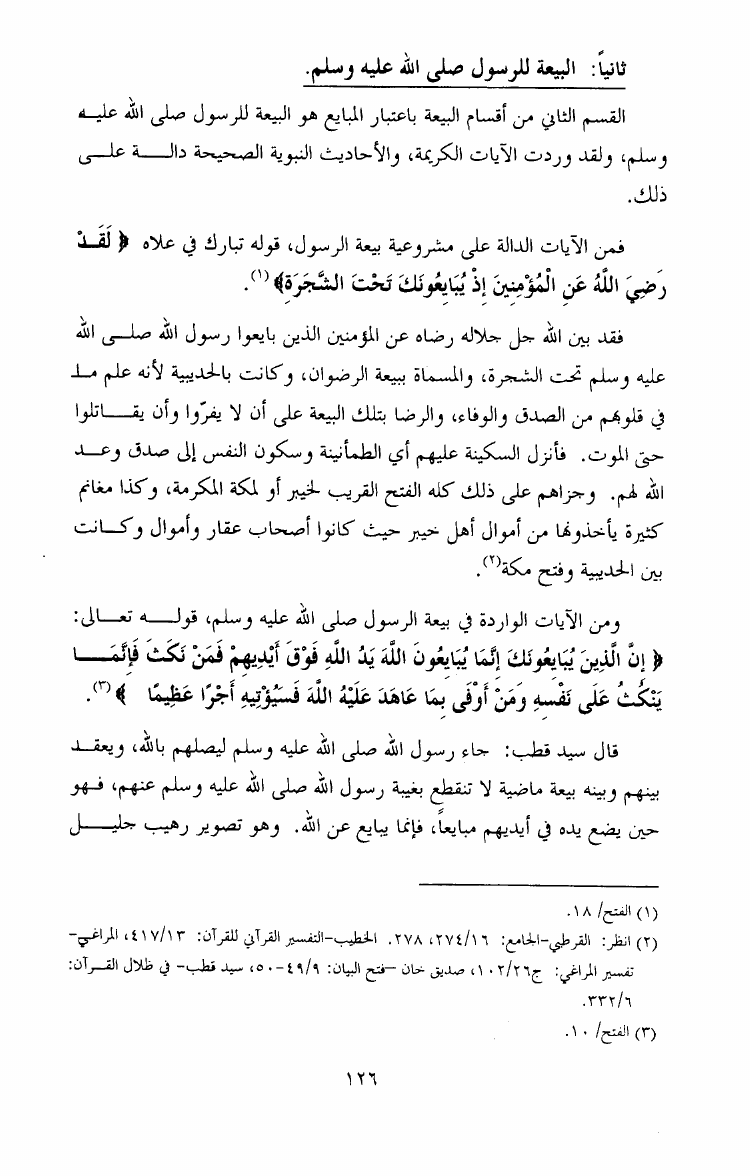 ثانياً: البيعة للرسول صلى الله عليه وسلم.
القسم الثاني من أقسام البيعة باعتبار المبايع هو البيعة للرسول صلى الله عليه
وسلم، ولقد وردت الآيات الكريمة، والأحاديث النبوية الصحيحة دالة على
ذلك.
فمن الآيات الدالة على مشروعية بيعة الرسول، قوله تبارك في علاه ﴿ لَقَدْ
رَضِيَ اللَّهُ عَنِ الْمُؤْمِنِينَ إِذْ يُبَايِعُونَكَ تَحْتَ الشَّجَرَةِ﴾(١).
فقد بين الله جل جلاله رضاه عن المؤمنين الذين بايعوا رسول الله صلى الله
عليه وسلم تحت الشجرة، والمسماة ببيعة الرضوان، وكانت بالحديبية لأنه علم ما
في قلوبهم من الصدق والوفاء، والرضا بتلك البيعة على أن لا يفرّوا وأن يقاتلوا
حتى الموت. فأنزل السكينة عليهم أي الطمأنينة وسكون النفس إلى صدق وعد
الله لهم. وجزاهم على ذلك كله الفتح القريب لخيبر أو لمكة المكرمة، وكذا مغانم
كثيرة يأخذونها من أموال أهل خيبر حيث كانوا أصحاب عقار وأموال وكانت
بين الحديبية وفتح مكة(٢).
ومن الآيات الواردة في بيعة الرسول صلى الله عليه وسلم، قوله تعالى:
﴿ إِنَّ الَّذِينَ يُبَايِعُونَكَ إِنَّمَا يُبَايِعُونَ اللَّهَ يَدُ اللَّهِ فَوْقَ أَيْدِيهِمْ فَمَنْ نَكَثَ فَإِنَّمَا
يَنْكُثُ عَلَى نَفْسِهِ وَمَنْ أَوْفَى بِمَا عَاهَدَ عَلَيْهُ اللَّهَ فَسَيُؤْتِيهِ أَجْرًا عَظِيمًا ﴾(٣).
قال سيد قطب: جاء رسول الله صلى الله عليه وسلم ليصلهم بالله، ويعقد
بينهم وبينه بيعة ماضية لا تنقطع بغيبة رسول الله صلى الله عليه وسلم عنهم، فهو
حين يضع يده في أيديهم مبايعاً، فإنما يبايع عن الله. وهو تصوير رهيب جليل
(١) الفتح/ ١٨.
(٢) انظر: القرطبي–الجامع: ٢٧٤/١٦، ٢٧٨. الخطيب–التفسير القرآني للقرآن: ٤١٧/١٣، المراغي–
تفسير المراغي: ج١٠٢/٢٦، صديق خان –فتح البيان: ٤٩/٩–٥٠، سيد قطب– في ظلال القرآن:
٣٣٢/٦.
(٣) الفتح/ ١٠.
١٢٦